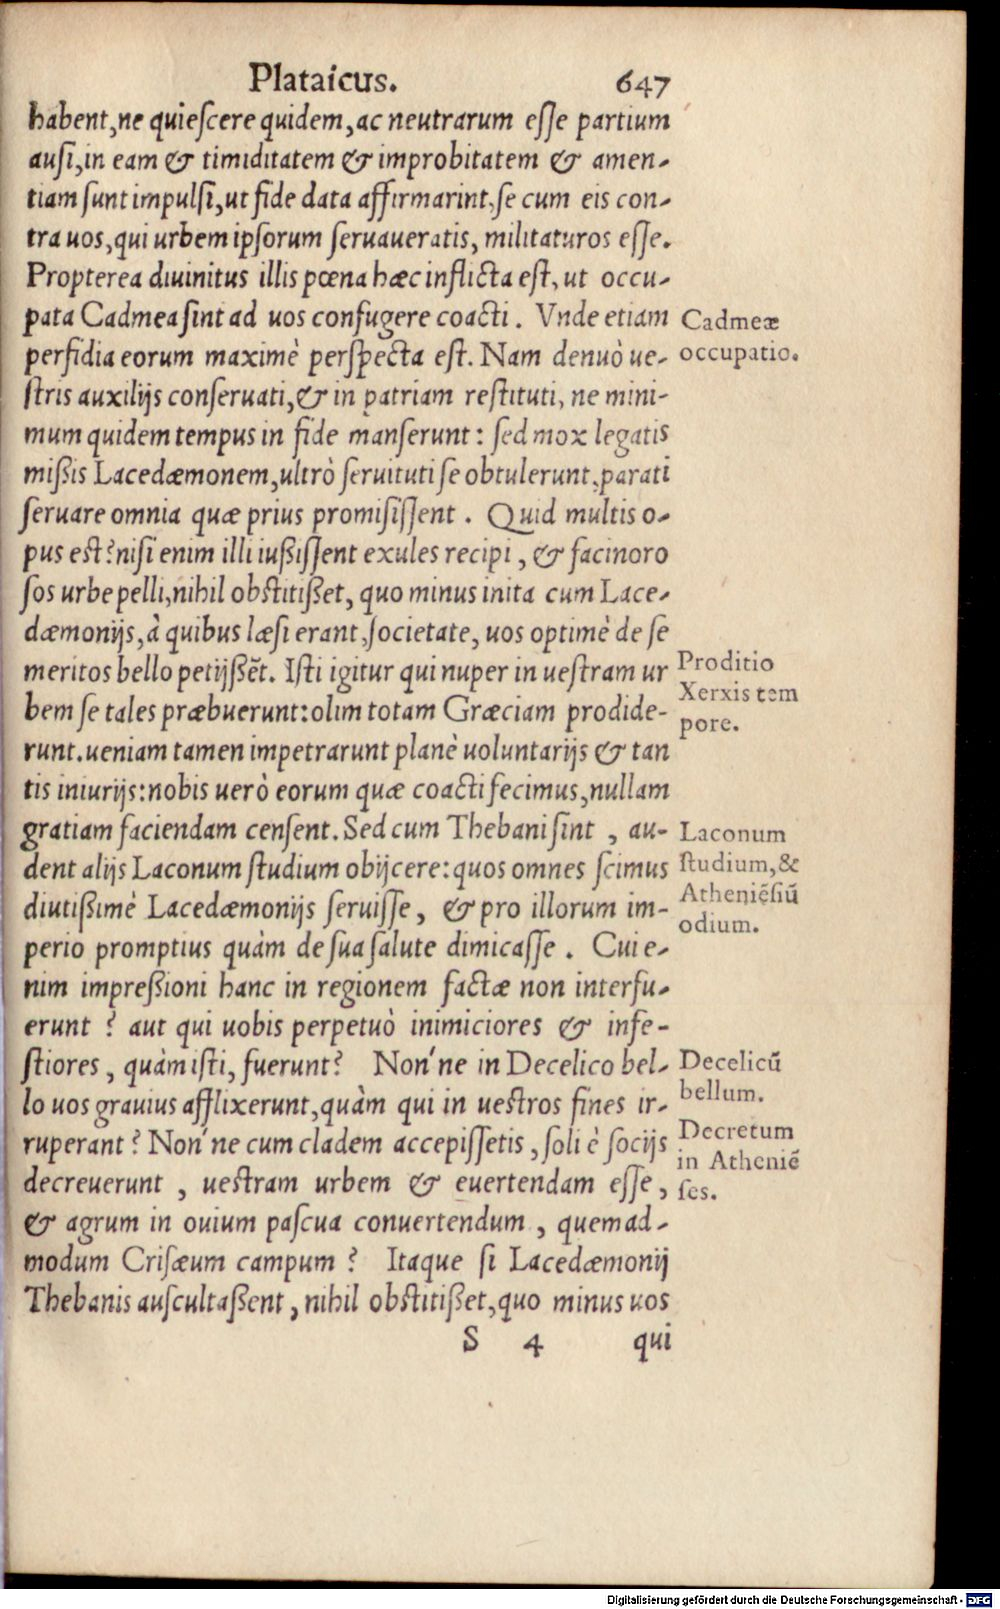 Plataicus. 647
habent, ne quieſcere quidem, ac neutrarum eſſe partium
auſi, in eam & timiditatem & improbitatem & amen-
tiam ſunt impulſi, ut fide data affirmarint, ſe cum eis con-
tra uos, qui urbem ipſorum ſeruaueratis, militaturos eſſe.
Propterea diuinitus illis pœna hæc inflicta eſt, ut occu-
pata Cadmea ſint ad uos confugere coacti. Vnde etiam
Cadmeæ
perfidia eorum maximè perſpecta eſt. Nam denuò ue-
occupatio.
ſtris auxilijs conſeruati, & in patriam reſtituti, ne mini-
mum quidem tempus in fide manſerunt: ſed mox legatis
mißis Lacedæmonem, ultrò ſeruituti ſe obtulerunt, parati
ſeruare omnia quæ prius promiſiſſent. Quid multis o-
pus eſt? niſi enim illi iußiſſent exules recipi, & facinoro
ſos urbe pelli, nihil obſtitißet, quo minus inita cum Lace-
dæmonijs, à quibus læſi erant, ſocietate, uos optimè de ſe
meritos bello petijßẽt. Iſti igitur qui nuper in ueſtram ur
Proditio
Xerxis tem
bem ſe tales præbuerunt: olim totam Græciam prodide-
pore.
runt. ueniam tamen impetrarunt planè uoluntarijs & tan
tis iniurijs: nobis uerò eorum quæ coacti fecimus, nullam
gratiam faciendam cenſent. Sed cum Thebani ſint, au-
Laconum
dent alijs Laconum ſtudium obijcere: quos omnes ſcimus
ſtudium, &
Atheniẽſiũ
diutißimè Lacedæmonijs ſeruiſſe, & pro illorum im-
odium.
perio promptius quàm de ſua ſalute dimicaſſe. Cui e-
nim impreßioni hanc in regionem factæ non interfu-
erunt? aut qui uobis perpetuò inimiciores & infe-
ſtiores, quàm iſti, fuerunt? Non'ne in Decelico bel-
Decelicũ
lo uos grauius afflixerunt, quàm qui in ueſtros fines ir-
bellum.
ruperant? Non'ne cum cladem accepiſſetis, ſoli è ſocijs
Decretum
in Atheniẽ
decreuerunt, ueſtram urbem & euertendam eſſe,
ſes.
& agrum in ouium paſcua conuertendum, quemad-
modum Criſæum campum? Itaque ſi Lacedæmonij
Thebanis auſcultaßent, nihil obſtitißet, quo minus uos
S 4 qui
Digitalisierung gefördert durch die Deutsche Forschungsgemeinschaft - DFG